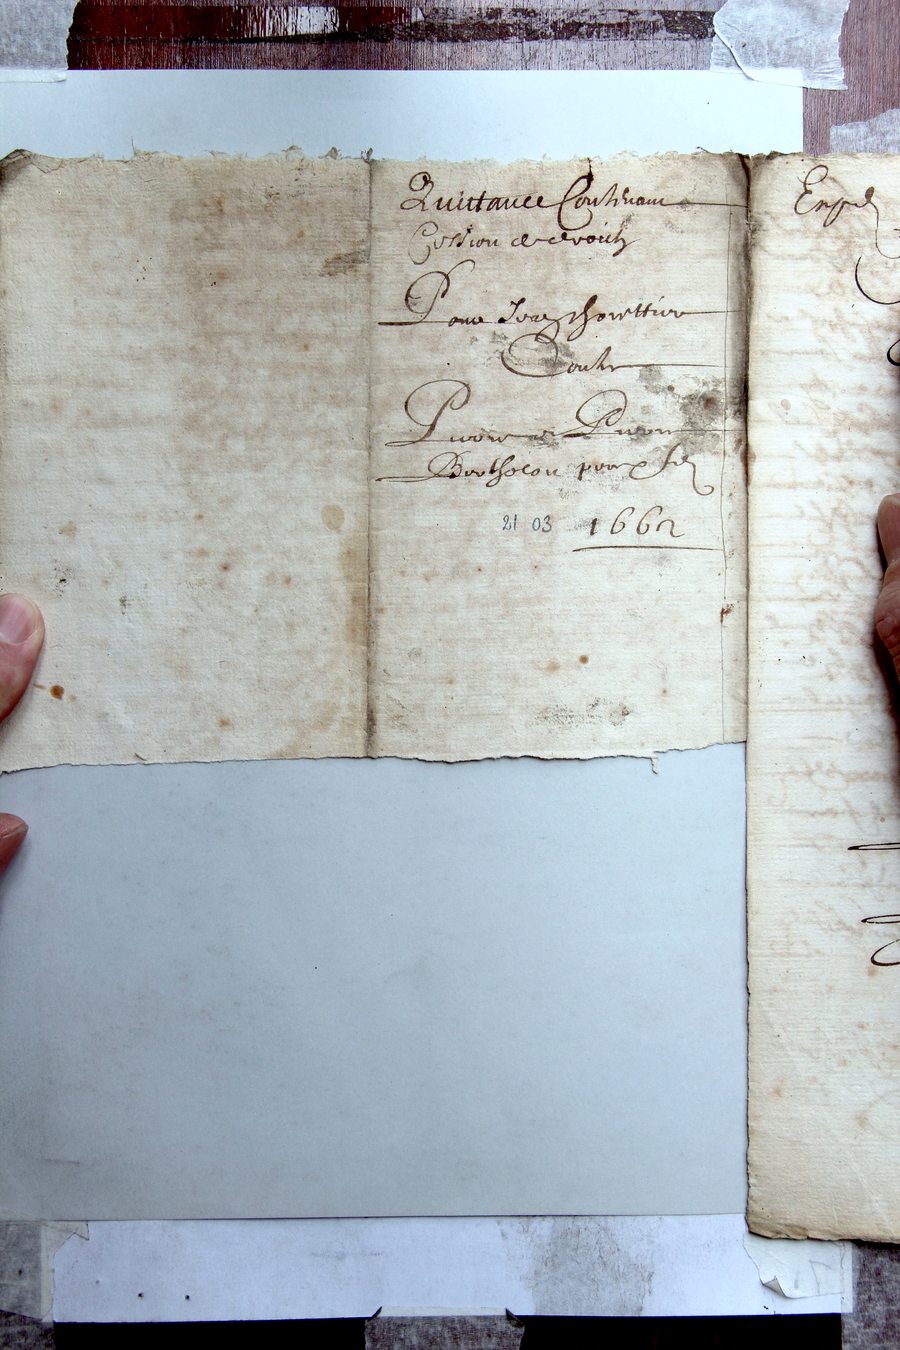 Quittance Contenant
Cession de droictz
Pour Jean
Contre
Pierre et Pierre
Berthelon pere et filz
21 03 1662